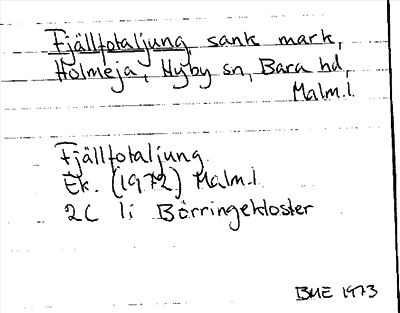 Fjällfotaljung, sank mark,
Holmeja, Hyby sn, Bara hd,
Malm.l.
Fjällfotaljung
Ek. (1972) Malm.l.
2C li Börringekloster
BME 1973